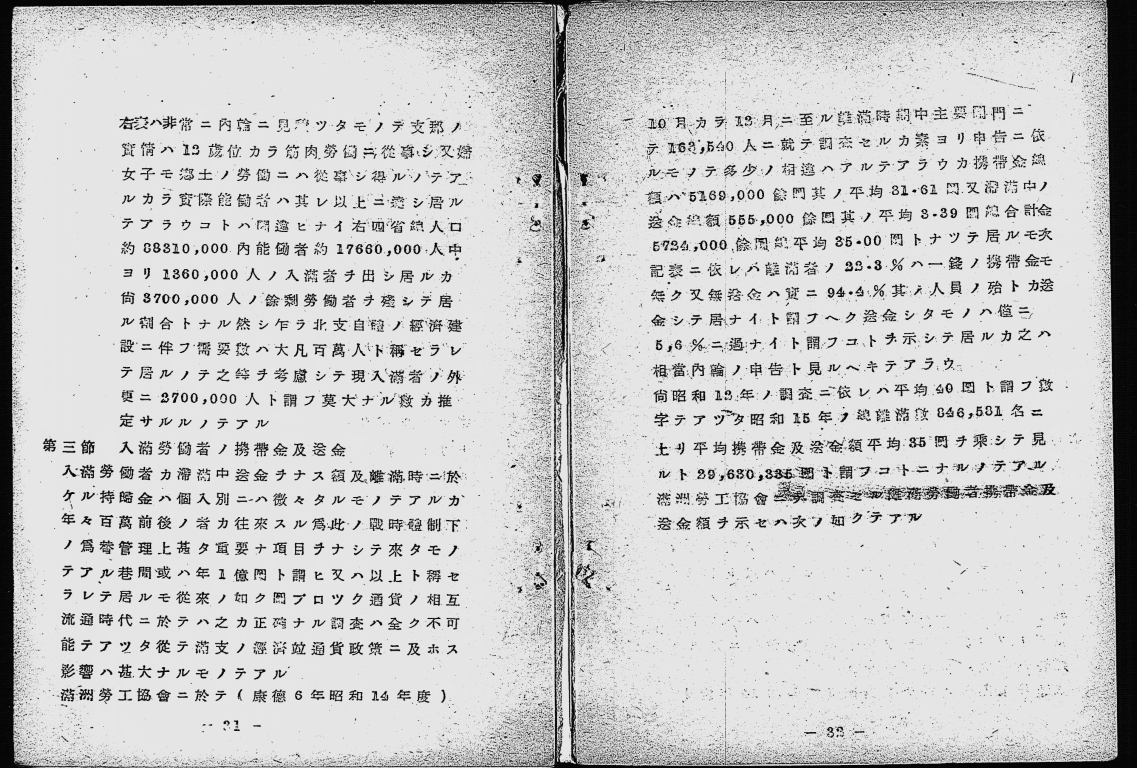 右表ハ非常ニ內輪ニ見積ツタモノテ支那ノ
實情ハ12歲位カラ筋肉勞働ニ從事シ又婦
女子モ鄕土ノ勞働ニハ從事シ得ルノテア
ルカラ實際能働者ハ其レ以上ニ達シ居ル
テアラウコトハ間違ヒナイ右四省總人口
約88310,000內能働者約17660,000人中
ヨリ1360,000人ノ入滿者ヲ出シ居ルカ
尙3700,000人ノ餘剩勞働者ヲ殘シテ居
ル割合トナル然シ乍ラ北支自體ノ經濟建
設ニ伴フ需要數ハ大凡百萬人ト稱セラレ
テ居ルノテ之等ヲ考慮シテ現入滿者ノ外
更ニ2700,000人ト謂フ莫大ナル數カ推
定サルルノテアル
第三節 入滿勞働者ノ携帶金及送金
入滿勞働者カ滯滿中送金ヲナス額及離滿時ニ於
ケル持歸金ハ個人別ニハ微々タルモノテアルカ
年々百萬前後ノ者カ往來スル爲此ノ戰時體制下
ノ爲替管理上甚タ重要ナ項目ヲナシテ來タモノ
テアル巷間或ハ年1億圓ト謂ヒ又ハ以上ト稱セ
ラレテ居ルモ從來ノ如ク圓ブロツク通貨ノ相互
流通時代ニ於テハ之カ正確ナル調査ハ全ク不可
能テアツタ從テ滿支ノ經濟竝通貨政策ニ及ホス
影響ハ甚大ナルモノテアル
滿洲勞工協會ニ於テ(康德6年昭和14年度)
— 31 —
10月カラ12月ニ至ル離滿時期中主要關門ニ
テ163,540人ニ就テ調査セルカ素ヨリ申告ニ依
ルモノテ多少ノ相違ハアルテアラウカ携帶金總
額ハ5169,000餘圓其ノ平均31·61圓又滯滿中ノ
送金總額555,000餘圓其ノ平均3·39圓總合計金
5724,000餘圓總平均35·00圓トナツテ居ルモ次
記表ニ依レハ離滿者ノ22·3%ハ一錢ノ携帶金モ
無ク又無送金ハ實ニ94·4%其ノ人員ノ殆トカ送
金シテ居ナイト謂フヘク送金シタモノハ僅ニ
5,6%ニ過ナイト謂フコトヲ示シテ居ルカ之ハ
相當內輪ノ申告ト見ルヘキテアラウ
尙昭和13年ノ調査ニ依レハ平均40圓ト謂フ數
字テアツタ昭和15年ノ總離滿數846,581名ニ
上リ平均携帶金及送金額平均35圓ヲ乘シテ見
ルト29,630,335圓ト謂フコトニナルノテアル
滿洲勞工協會ニテ調査セル離滿勞働者携帶金及
送金額ヲ示セハ次ノ如クテアル
— 32 —